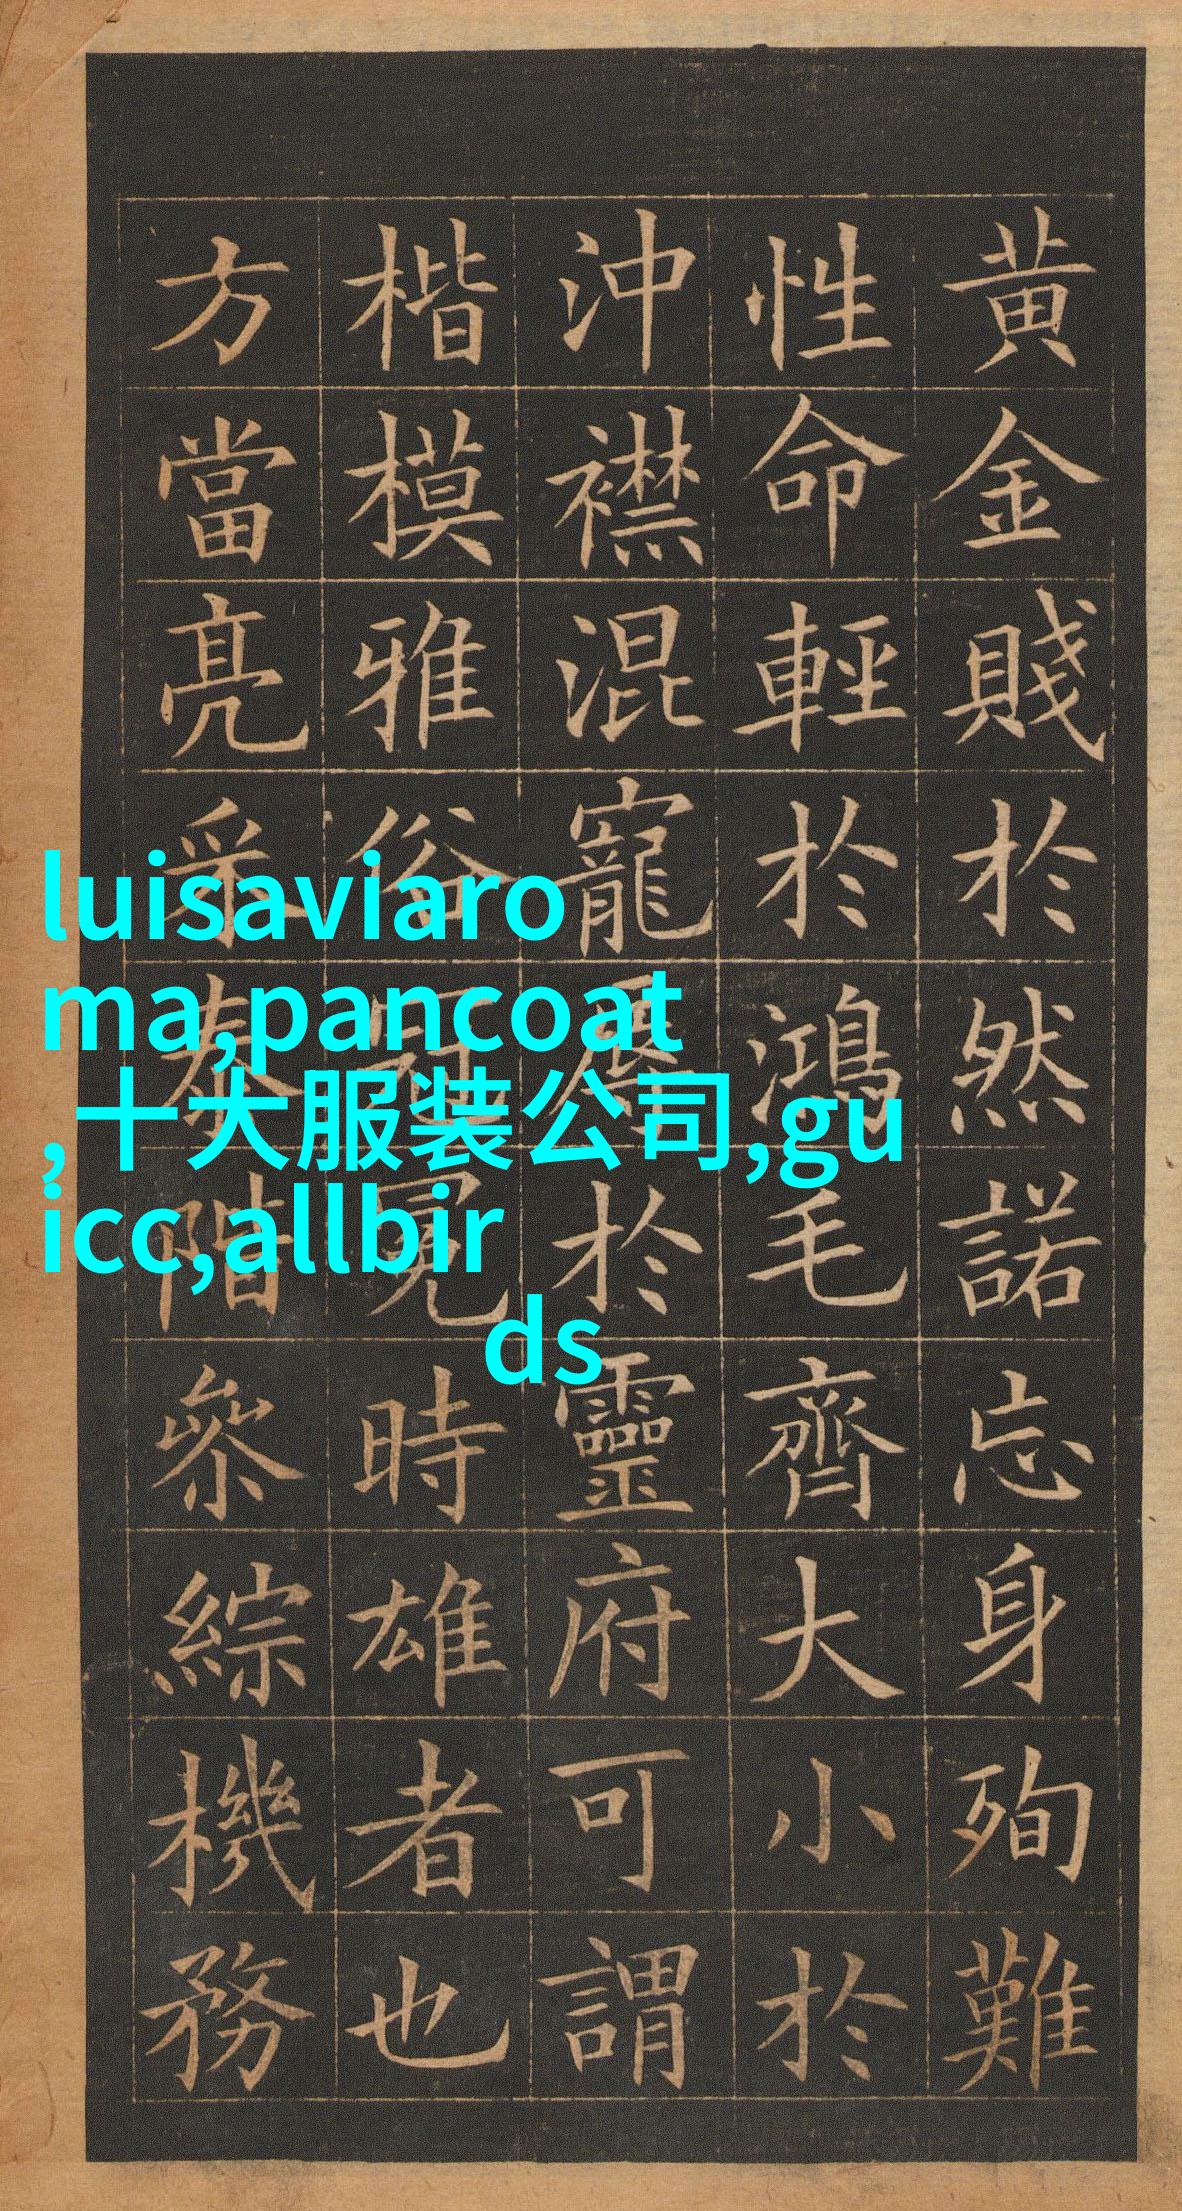 黄金賤於然諾忘身殉難
性命輕於鴻毛齊大小於
沖襟混寵辱於靈府可謂
楷模雅俗冠冕時雄者也
方當亮采泰階參綜機務
luisaviaro
ma,pancoat
,十大服装公司,gu
icc,allbir
ds